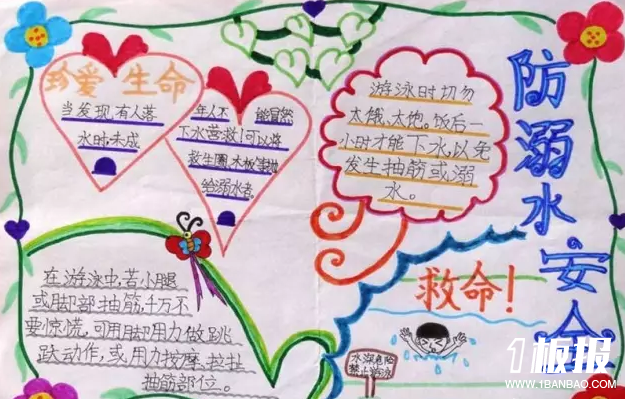 珍爱生命
当发现有人落
水时,未成
年人不能冒然
下水营救!可以将
救生圈,木板等抛
给溺水者。
游泳时切勿
太饿、太饱。饭后一
小时才能下水,以免
发生抽筋或溺
水。
防溺水。安全
在游泳中,若小腿
或脚部抽筋,千万不
要惊慌,可用脚用力做跳
跃动作,或用力按摩、拉扯
抽筋部位。
救命!
水深危险
禁止游泳
1板报
WWW.1BANBAO.COM